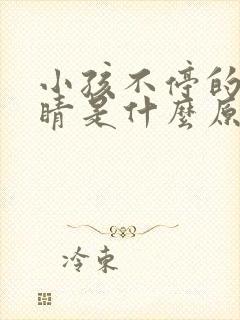 小孩不停的
睛是什麼原
冷束